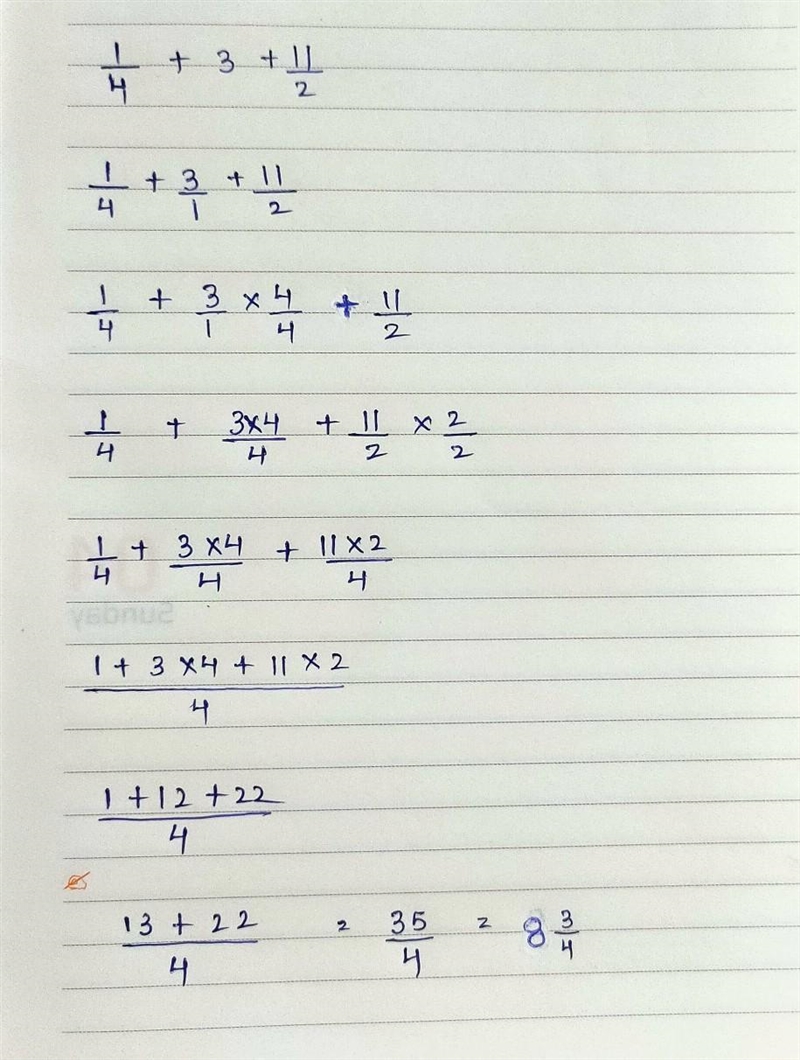 1/4 + 3 + 11/2
1/4 + 3/1 + 11/2
1/4 + 3/1 × 4/4 + 11/2
1/4 + 3×4/4 + 11/2 × 2/2
1/4 + 3×4/4 + 11×2/4
1 + 3×4 + 11×2 / 4
Sunday
1 + 12 + 22 / 4
13 + 22 / 4 = 35/4 = 8 3/4